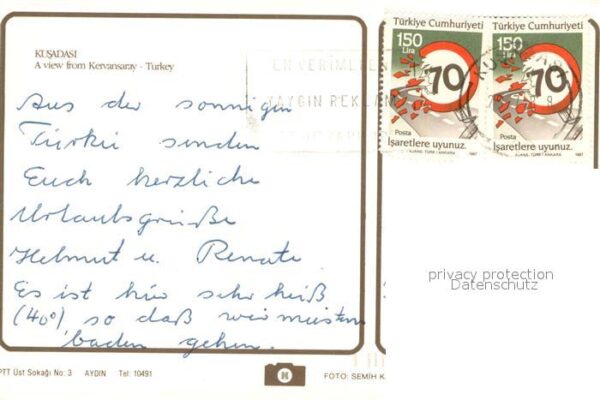 KUŞADASI
A view from Kervansaray - Turkey
Aus der sonnigen
Türkei senden
Euch herzliche
Urlaubsgrüße
Helmut u. Renate
Es ist hier sehr heiß
(40°) so daß wir meistens
baden gehen.
PTT Üst Sokağı No: 3 AYDIN Tel: 10491
FOTO: SEMİH
EN VERİMLİ
YAYGIN REKLAM
Türkiye Cumhuriyeti
150
Lira
70
Posta
İşaretlere uyunuz.
AJANS-TÜRK / ANKARA 1987
Türkiye Cumhuriyeti
150
Lira
70
Posta
İşaretlere uyunuz.
AJANS-TÜRK / ANKARA 1987
privacy protection
Datenschutz